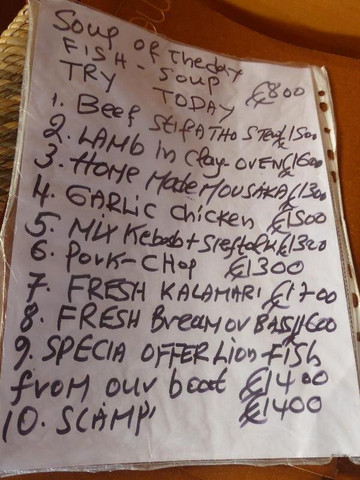 Soup of the day
FISH - SOUP £800
TRY TODAY
1. Beef StifATHO Stew £1500
2. LAMB in Clay-OVEN £1600
3. HOME MADE MOUSAKA £1300
4. GARLIC Chicken £1500
5. MIX Kebab +
6. PORK-CHOP £1300
7. FRESH KALAMARI £1700
8. FRESH Bream or BASS £1600
9. SPECIA OFFER Lion FISh
from our boat £1400
10. SCAMPI £1400